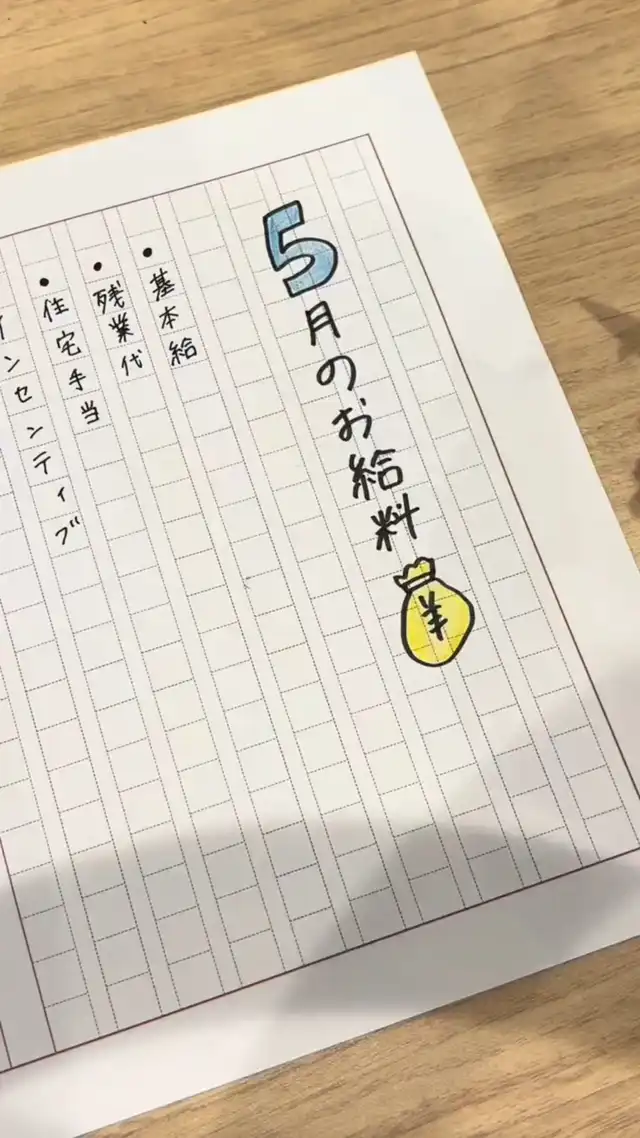 5月のお給料
¥
・基本給
・残業代
・住宅手当
インセンティブ